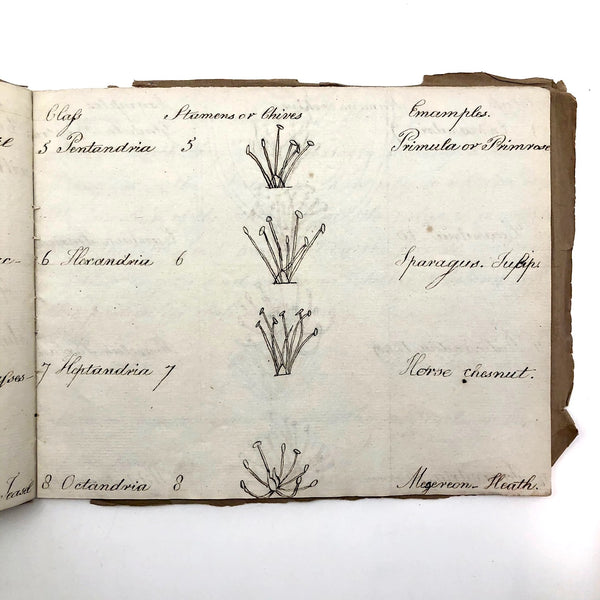 Claſs Stamens or Chives Examples.
5 Pentandria 5 Primula or Primrose
6 Hexandria 6 Sparagus. Tulip.
7 Heptandria 7 Horse chesnut.
Teasel 8 Octandria 8 Mezereon - Heath.